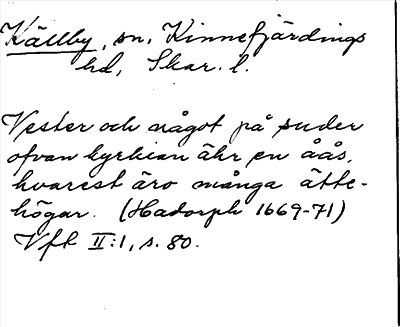 Källby, sn, Kinnefjärdings
hd, Skar. l.
Vester och något på suder
ofvan kyrkian ähr en åås,
hvarest äro många ätte-
högar. (Hadorph 1669-71)
Vft II:1, s. 80.